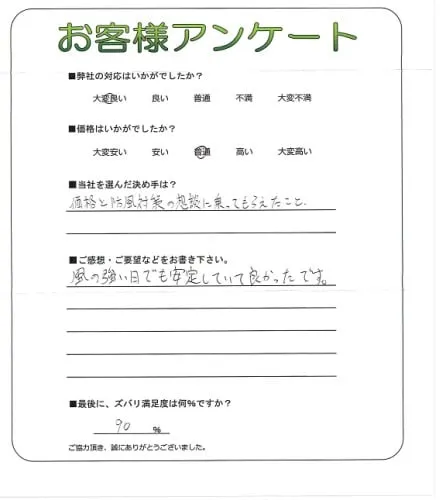 お客様アンケート
■弊社の対応はいかがでしたか？
大変良い 良い 普通 不満 大変不満
■価格はいかがでしたか？
大変安い 安い 普通 高い 大変高い
■当社を選んだ決め手は？
価格と防風対策の相談に乗ってもらえたこと.
■ご感想・ご要望などをお書き下さい。
風の強い日でも安定していて良かったです。
■最後に、ズバリ満足度は何%ですか？
90 %
ご協力頂き、誠にありがとうございました。